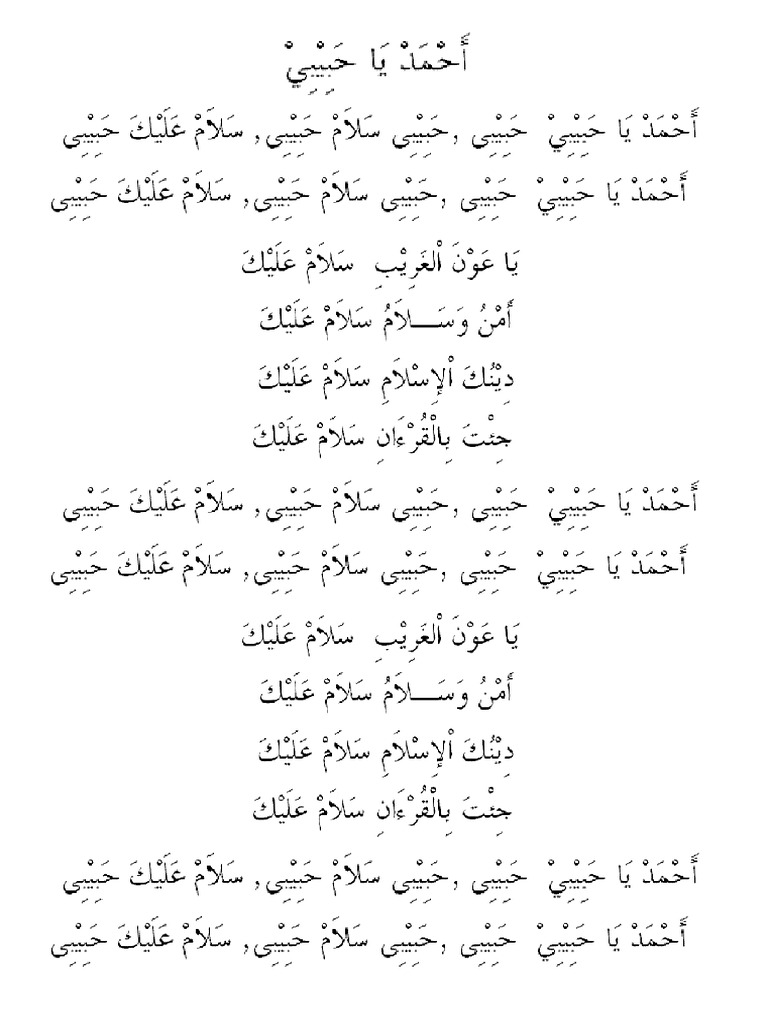 أَحْمَدْ يَا حَبِيْبِيْ
أَحْمَدْ يَا حَبِيْبِيْ حَبِيْبِى ,حَبِيْبِى سَلاَمْ حَبِيْبِى, سَلاَمْ عَلَيْكَ حَبِيْبِى
أَحْمَدْ يَا حَبِيْبِيْ حَبِيْبِى ,حَبِيْبِى سَلاَمْ حَبِيْبِى, سَلاَمْ عَلَيْكَ حَبِيْبِى
يَا عَوْنَ اْلغَرِيْبِ سَلاَمْ عَلَيْكَ
أَمْنُ وَسَـــلاَمُ سَلاَمْ عَلَيْكَ
دِيْنُكَ اْلاِسْلَامِ سَلاَمْ عَلَيْكَ
جِئْتَ بِالْقُرْءَانِ سَلاَمْ عَلَيْكَ
أَحْمَدْ يَا حَبِيْبِيْ حَبِيْبِى ,حَبِيْبِى سَلاَمْ حَبِيْبِى, سَلاَمْ عَلَيْكَ حَبِيْبِى
أَحْمَدْ يَا حَبِيْبِيْ حَبِيْبِى ,حَبِيْبِى سَلاَمْ حَبِيْبِى, سَلاَمْ عَلَيْكَ حَبِيْبِى
يَا عَوْنَ اْلغَرِيْبِ سَلاَمْ عَلَيْكَ
أَمْنُ وَسَـــلاَمُ سَلاَمْ عَلَيْكَ
دِيْنُكَ اْلاِسْلَامِ سَلاَمْ عَلَيْكَ
جِئْتَ بِالْقُرْءَانِ سَلاَمْ عَلَيْكَ
أَحْمَدْ يَا حَبِيْبِيْ حَبِيْبِى ,حَبِيْبِى سَلاَمْ حَبِيْبِى, سَلاَمْ عَلَيْكَ حَبِيْبِى
أَحْمَدْ يَا حَبِيْبِيْ حَبِيْبِى ,حَبِيْبِى سَلاَمْ حَبِيْبِى, سَلاَمْ عَلَيْكَ حَبِيْبِى